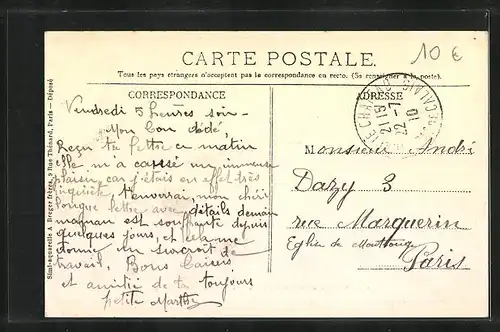 10 €
CARTE POSTALE.
Tous les pays étrangers n'acceptent pas la correspondance en recto. (Se renseigner à la poste).
CORRESPONDANCE
ADRESSE
21 15
22 -7
10
Vendredi 5 heures soir -
Mon bon dédé,
Reçu ta lettre ce matin
elle m'a causé un immense
plaisir, car j'étais en effet très
inquiète. T'enverrai, mon chéri
longue lettre avec détails demain
maman est souffrante depuis
quelques jours, et cela me
donne un surcroit de
travail. Bons baisers
et amitié de ta toujours
petite Marthe
Monsieur André
Dazy 3
rue Marguerin
Eglise de Montrouge
Paris
Simi-aquarelle A. Breger frères, 9 Rue Thénard, Paris — Déposé